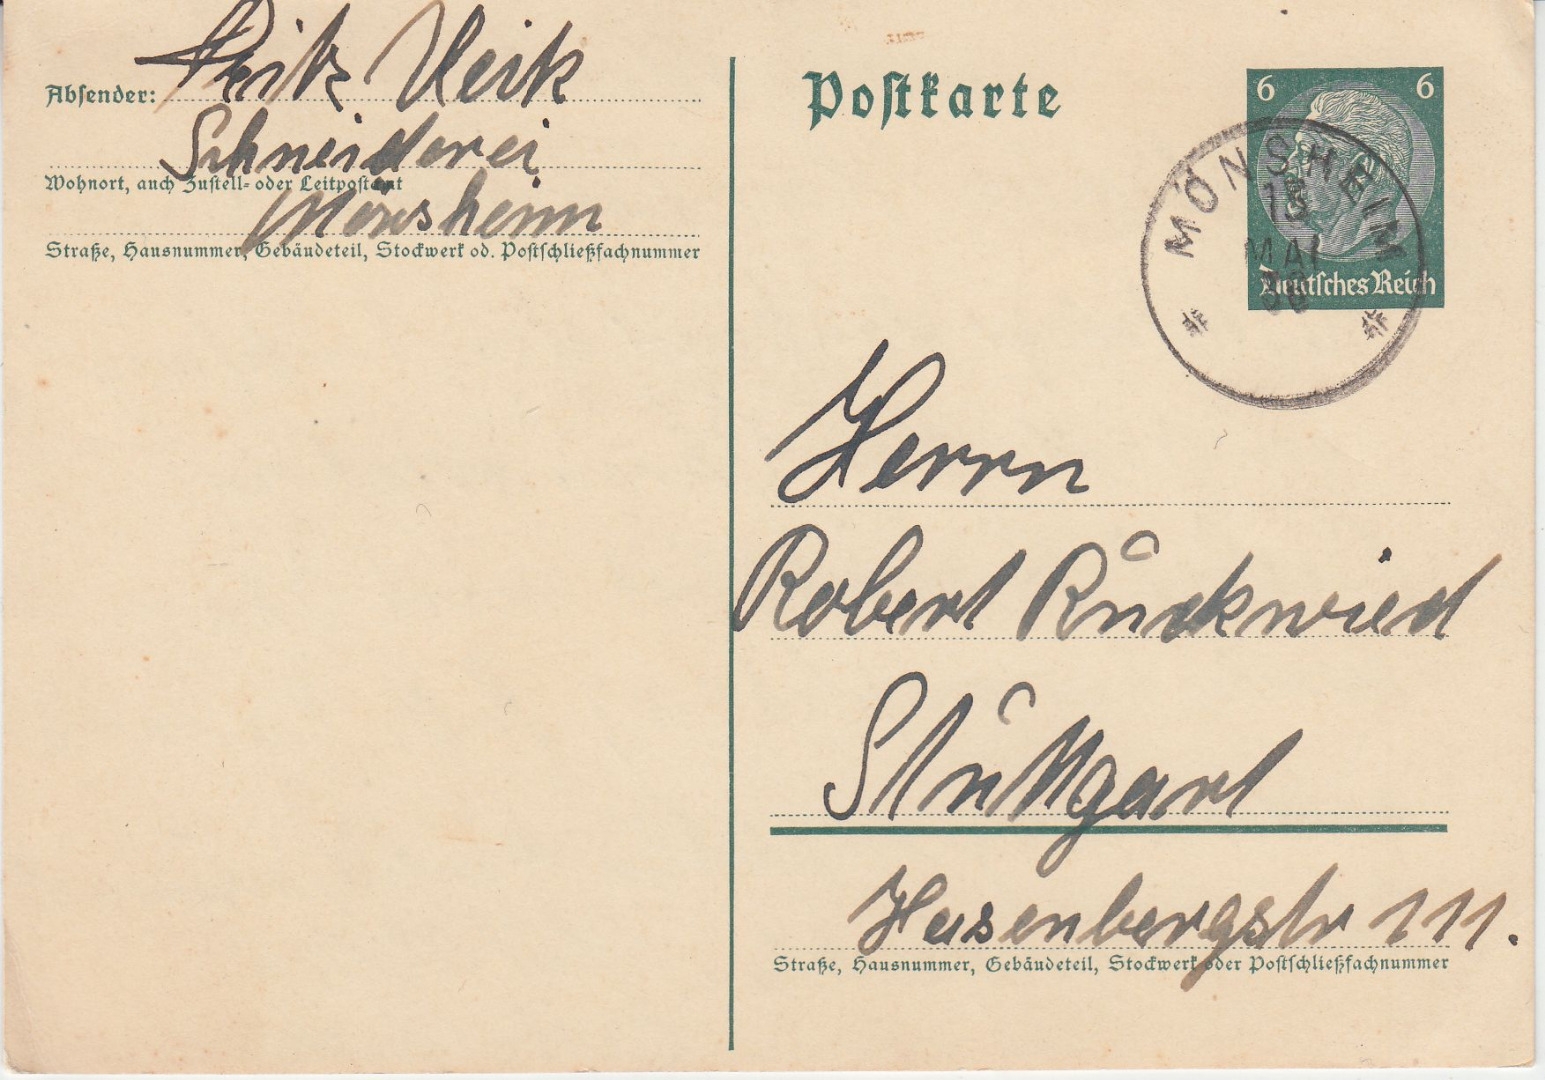 Absender: Fritz Veik
Schneiderei
Wohnort, auch Zustell- oder Leitpostamt
Mönsheim
Straße, Hausnummer, Gebäudeteil, Stockwerk od. Postschließfachnummer
Postkarte
6 6
Deutsches Reich
MÖNSHEIM
MAI
Herrn
Robert Rückwied
Stuttgart
Hasenbergstr 111.
Straße, Hausnummer, Gebäudeteil, Stockwerk oder Postschließfachnummer